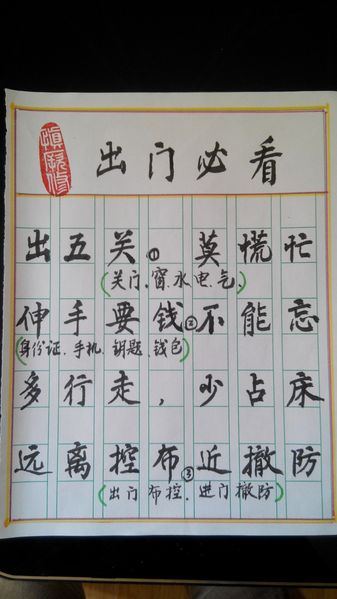 出门必看
出五关①莫慌忙
(关门、窗、水、电、气、)
伸手要钱②不能忘
(身份证、手机、钥匙、钱包)
多行走，少占床
远离控布③近撤防
(出门布控、进门撤防)